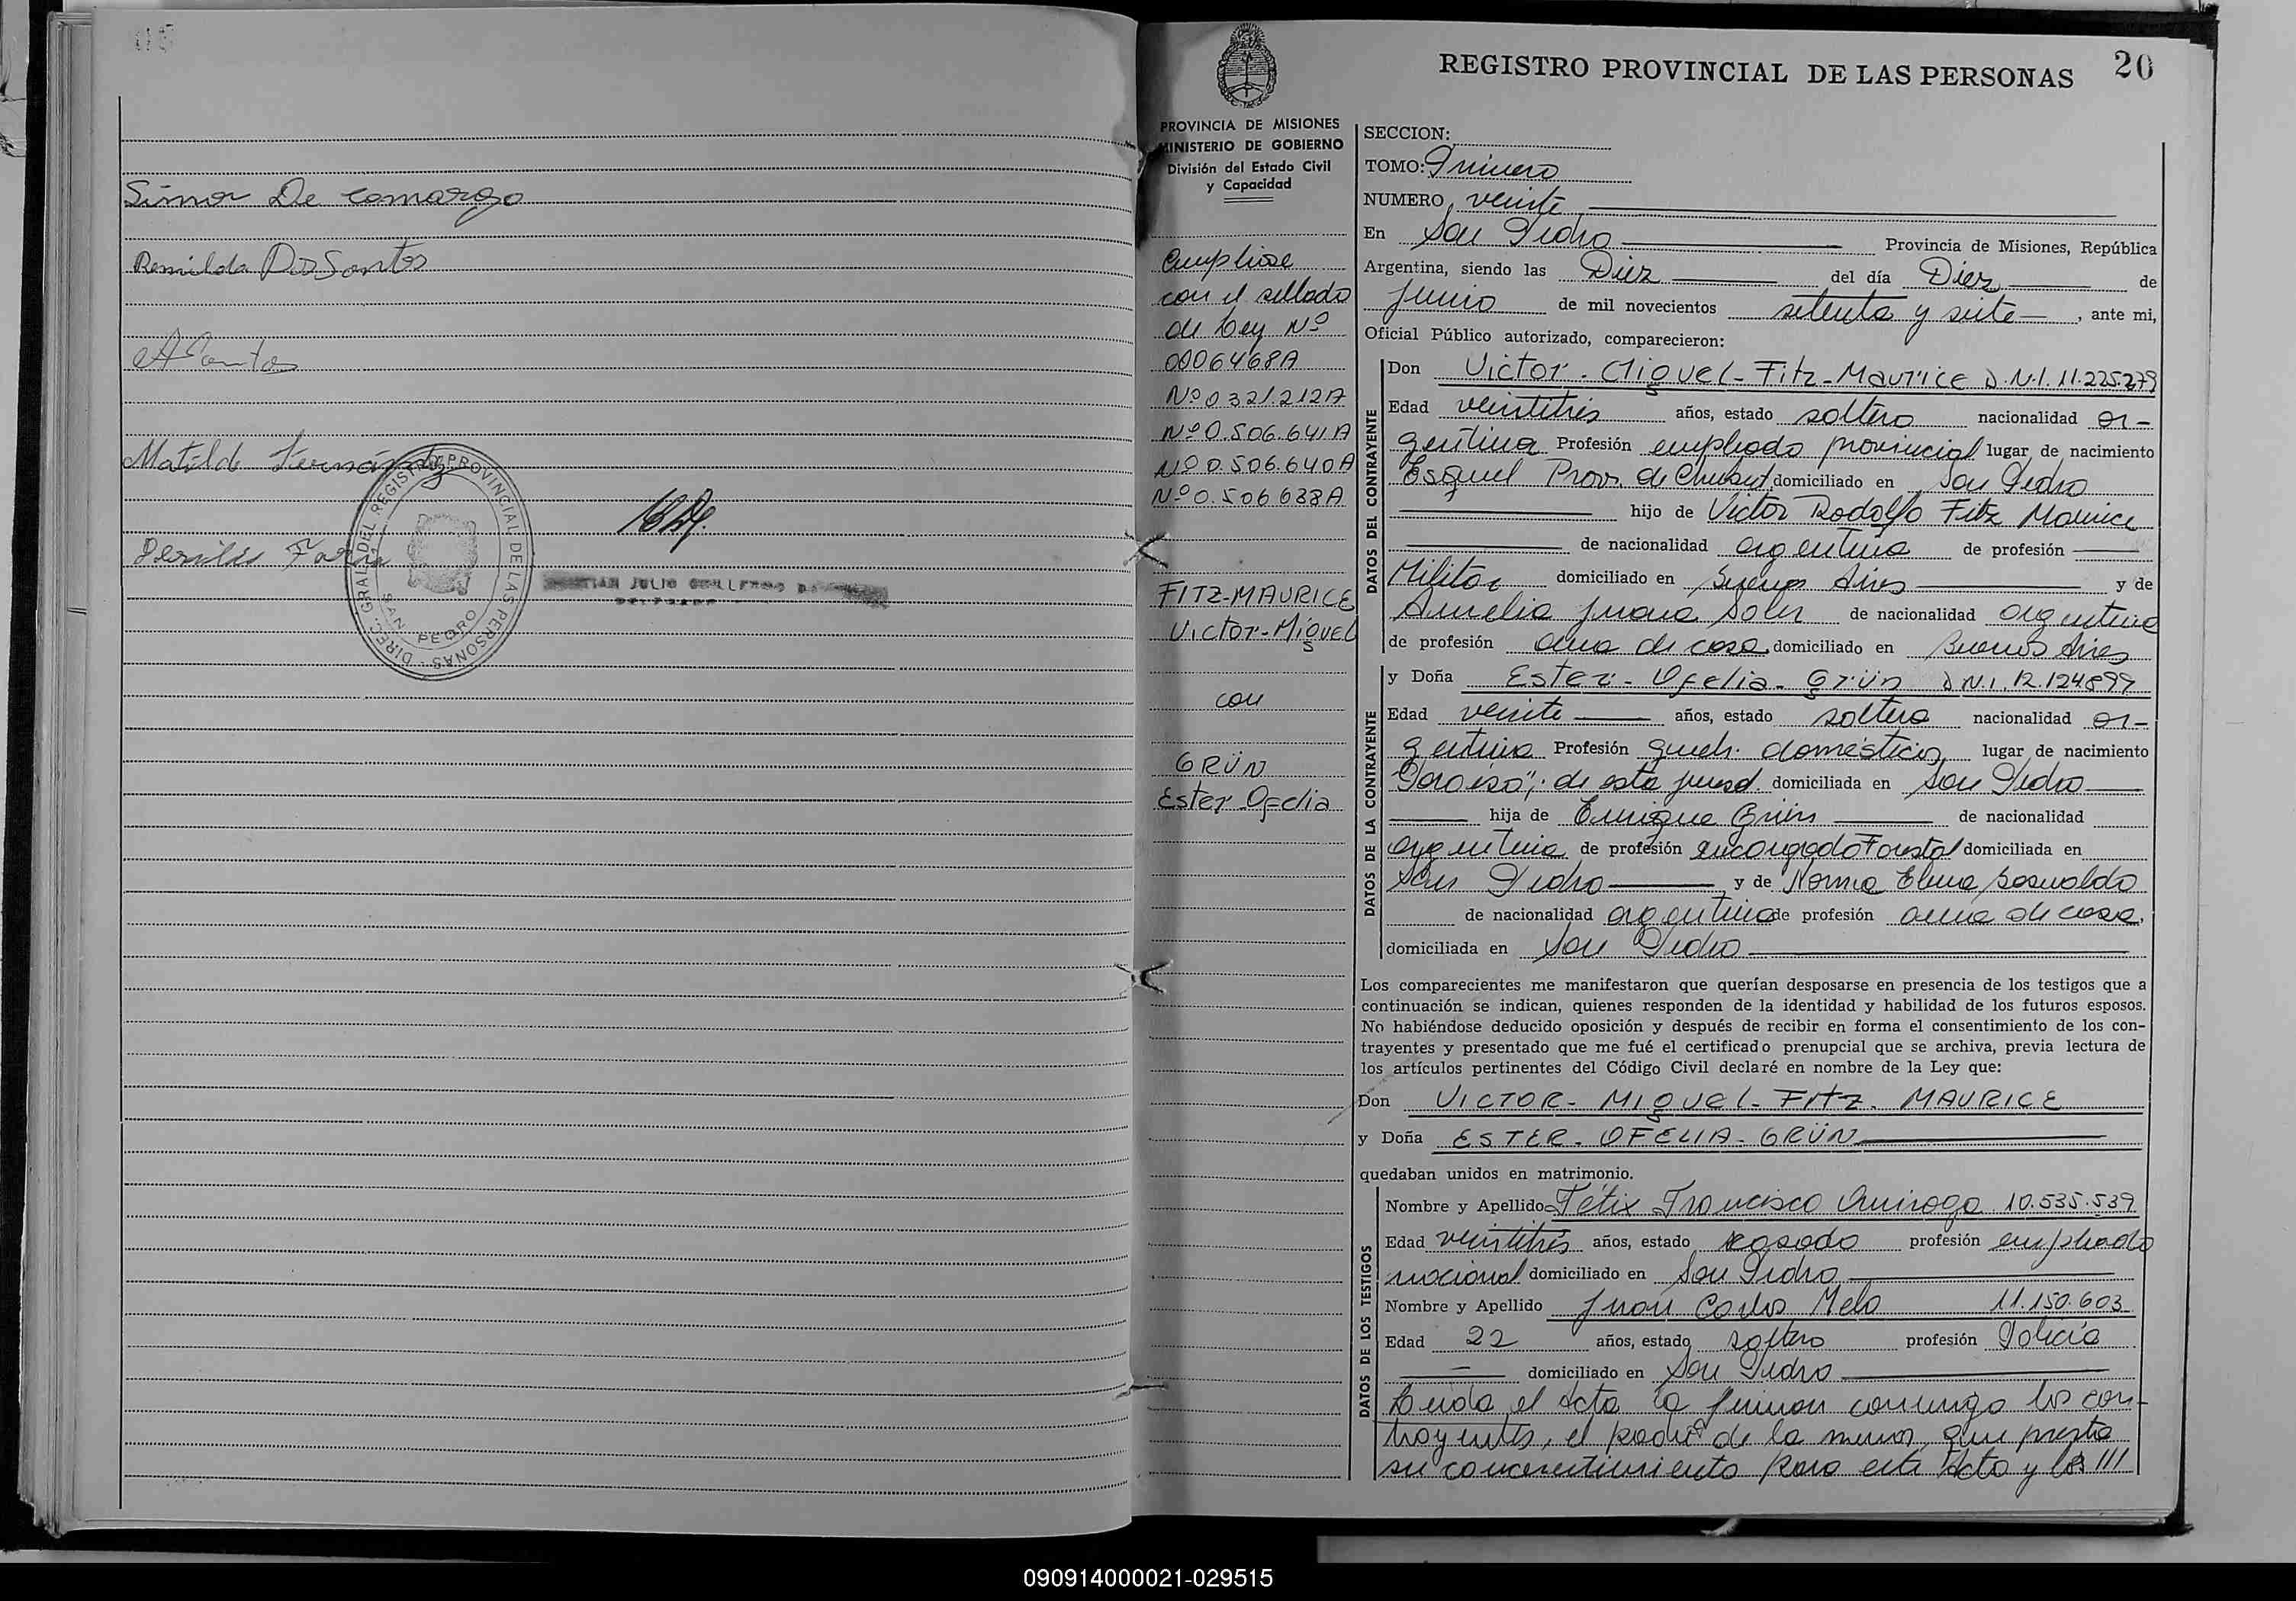 Simon De Camargo
Romilda Dos Santos
A Santos
Matilde Fernández
Fari
DIREC. GRAL. DEL REGISTRO PROVINCIAL DE LAS PERSONAS
SAN PEDRO
JULIO
REGISTRO PROVINCIAL DE LAS PERSONAS
20
PROVINCIA DE MISIONES
MINISTERIO DE GOBIERNO
División del Estado Civil
y Capacidad
Cumpliose
con el sellado
de Ley Nº
0006468A
Nº 0321.212A
Nº 0.506.641A
Nº 0.506.640A
Nº 0.506.638A
FITZ-MAURICE
Victor-Miguel
con
GRÜN
Ester Ofelia
SECCION:
TOMO: Primero
NUMERO veinte
En San Pedro Provincia de Misiones, República
Argentina, siendo las Diez del día Diez de
Junio de mil novecientos setenta y siete, ante mi,
Oficial Público autorizado, comparecieron:
DATOS DEL CONTRAYENTE
Don Victor-Miguel-Fitz-Maurice D.N.I. 11.225.279
Edad veintitrés años, estado soltero nacionalidad ar-
gentina Profesión empleado provincial lugar de nacimiento
Esquel Prov. de Chubut domiciliado en San Pedro
hijo de Victor Rodolfo Fitz Maurice
de nacionalidad argentina de profesión
Militar domiciliado en Buenos Aires y de
Aurelia Juana Soler de nacionalidad argentina
de profesión ama de casa domiciliado en Buenos Aires
DATOS DE LA CONTRAYENTE
y Doña Ester-Ofelia-Grün D.N.I. 12.124.899
Edad veinte años, estado soltera nacionalidad ar-
gentina Profesión queh. domésticos, lugar de nacimiento
"Paraiso"; de esta jurisd. domiciliada en San Pedro
hija de Enrique Grün de nacionalidad
argentina de profesión encargado Forestal domiciliada en
San Pedro y de Norma Elena
de nacionalidad argentina de profesión ama de casa,
domiciliada en San Pedro
Los comparecientes me manifestaron que querían desposarse en presencia de los testigos que a
continuación se indican, quienes responden de la identidad y habilidad de los futuros esposos.
No habiéndose deducido oposición y después de recibir en forma el consentimiento de los con-
trayentes y presentado que me fué el certificado prenupcial que se archiva, previa lectura de
los artículos pertinentes del Código Civil declaré en nombre de la Ley que:
Don VICTOR-MIGUEL-FITZ-MAURICE
y Doña ESTER-OFELIA-GRÜN
quedaban unidos en matrimonio.
DATOS DE LOS TESTIGOS
Nombre y Apellido Félix Francisco Quiroga 10.535.539
Edad veintitrés años, estado casado profesión empleado
nacional domiciliado en San Pedro
Nombre y Apellido Juan Carlos Melo 11.150.603
Edad 22 años, estado soltero profesión Policía
domiciliado en San Pedro
Leida el Acta la firman conmigo los con-
trayentes, el padre de la menor, que presta
su concentimiento para este Acto y los ///
090914000021-029515